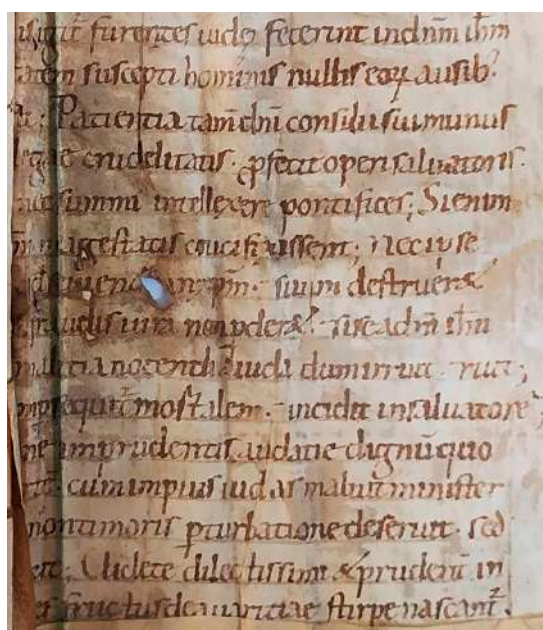 furentes iudei fecerint indnm ihm
suscepti hominis nullis eoꝝ ausib;
Patientia tam̄ dn̄i consilii sui munus
crudelitatis. ꝓfecit operi saluatoris.
summi intellexere pontifices; Si enim
magestatis crucifixissent; Nec ipse
suum destruer&
fraudis iura non pder&. si se ih̄u
malitia nocendi auida dum irruit. ruit;
mortalem. incidit insaluatorē;
imprudentis audatie dignū quo
cum impius iudas maluit minister
timoris pturbatione deseruit. sed
Uidete dilectissimi & prudent̄ in
fructus de auariciae stirpe nascant̄.